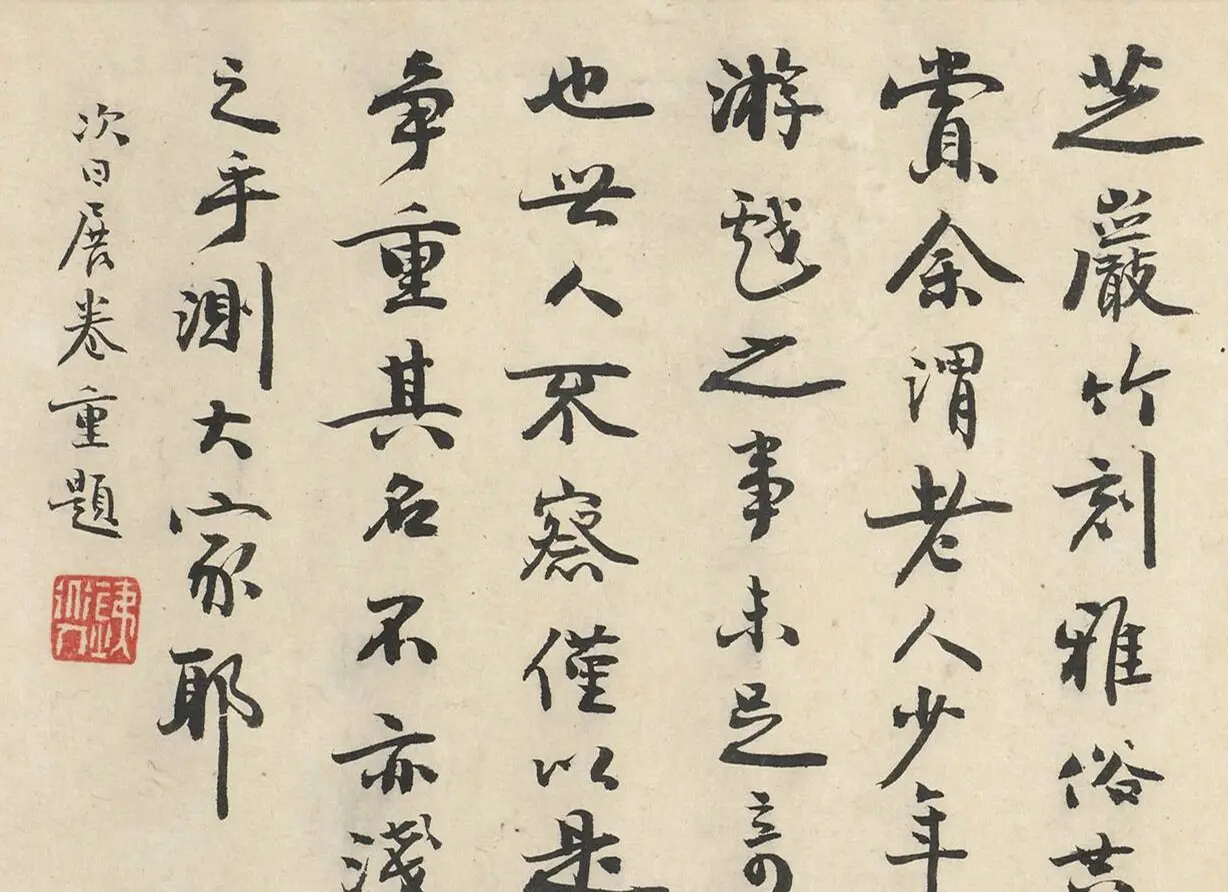 芝巖竹刻雅俗共
賞余謂老人少年
游戲之事未足言
也世人不察僅以是
爭重其名不亦淺
之乎測大家耶
次日展卷重題